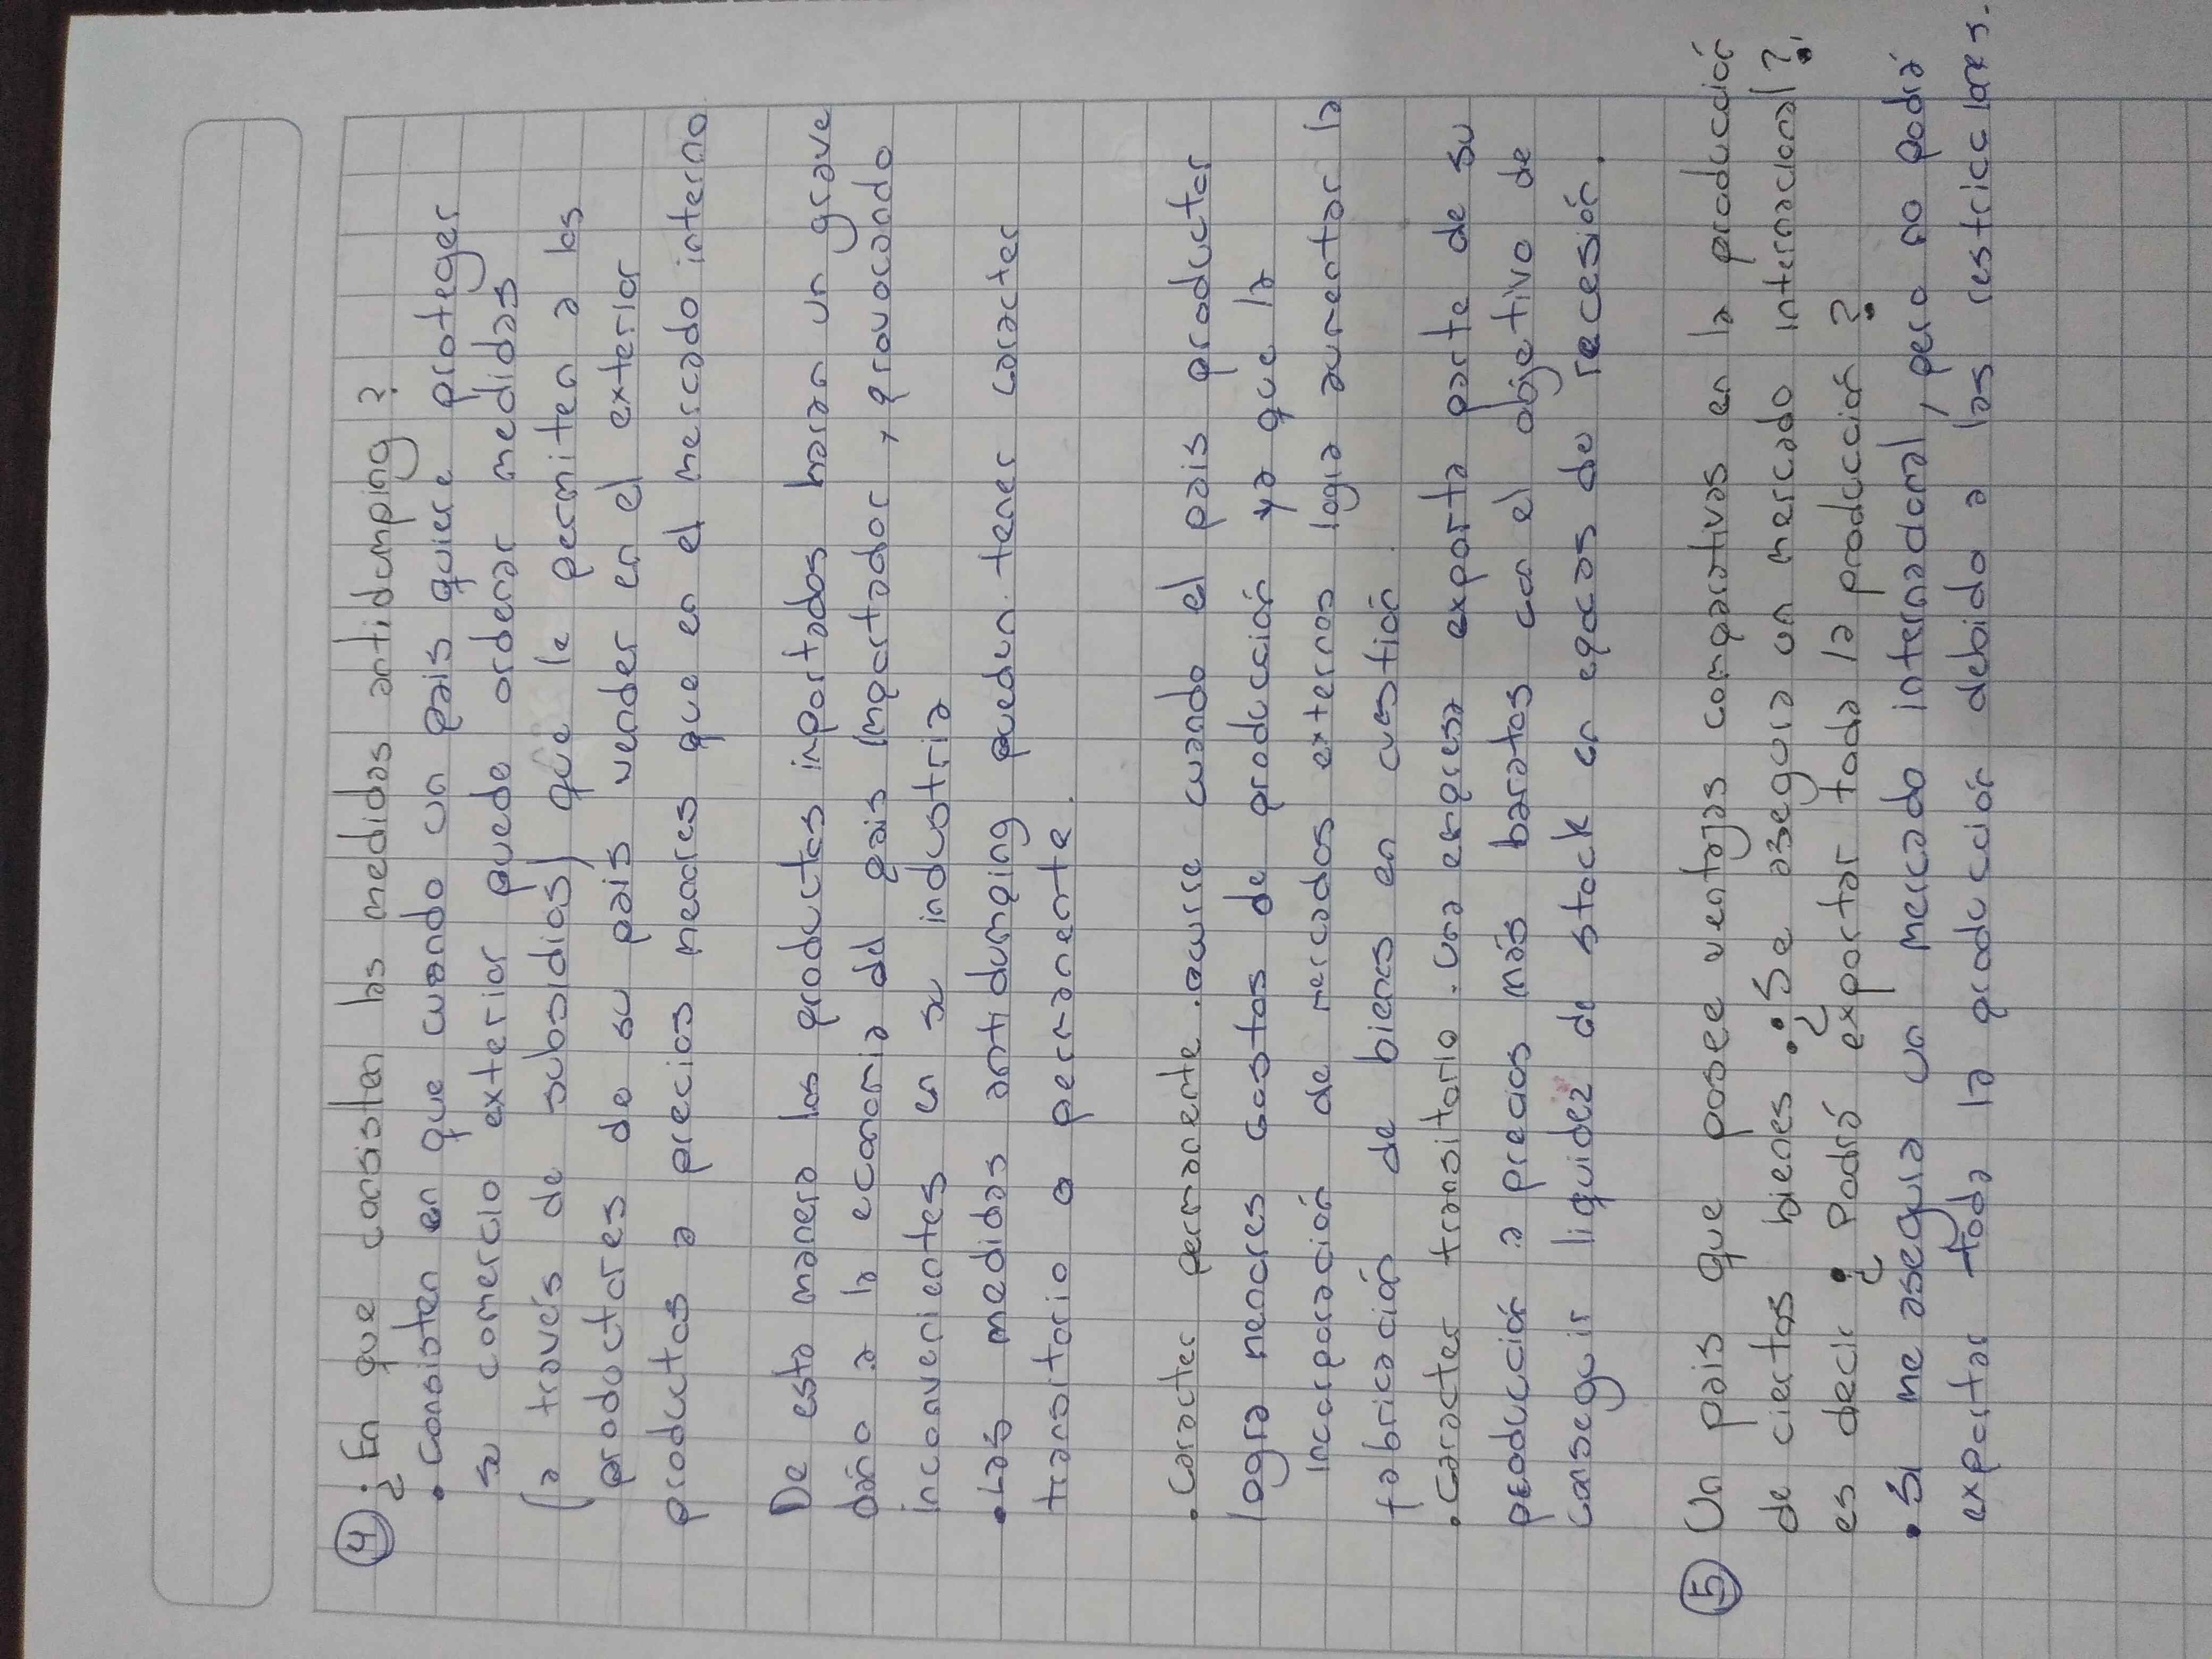 ④ ¿En que consisten las medidas antidumping?
• Consisten en que cuando un pais quiere proteger
su comercio exterior puede ordenar medidas
(a través de subsidios) que le permiten a los
productores de su pais vender en el exterior
productos a precios menores que en el mercado interno
De esta manera los productos inportados haran un grave
daño a la economia del pais importador, provocando
inconvenientes en su industria
• Las medidas antidumping puedun tener caracter
transitorio o permanente.
• Caracter permanente. ocurre cuando el pais productor
logra menores costos de producción ya que la
incorporación de mercados externos logra aumentar la
fabricación de bienes en cuestión.
• Caracter transitorio. una empresa exporta parte de su
producción a precios más baratos con el objetivo de
conseguir liquidez de stock en epocas de recesión.
⑤ Un pais que posee ventajas comparativas en la producción
de ciertos bienes. ¿Se asegura un mercado internacional?.
es decir ¿Podrá exportar toda la producción?
• Si me asegura un mercado internacional, pero no podrá
exportar toda la producción debido a las restricciones.